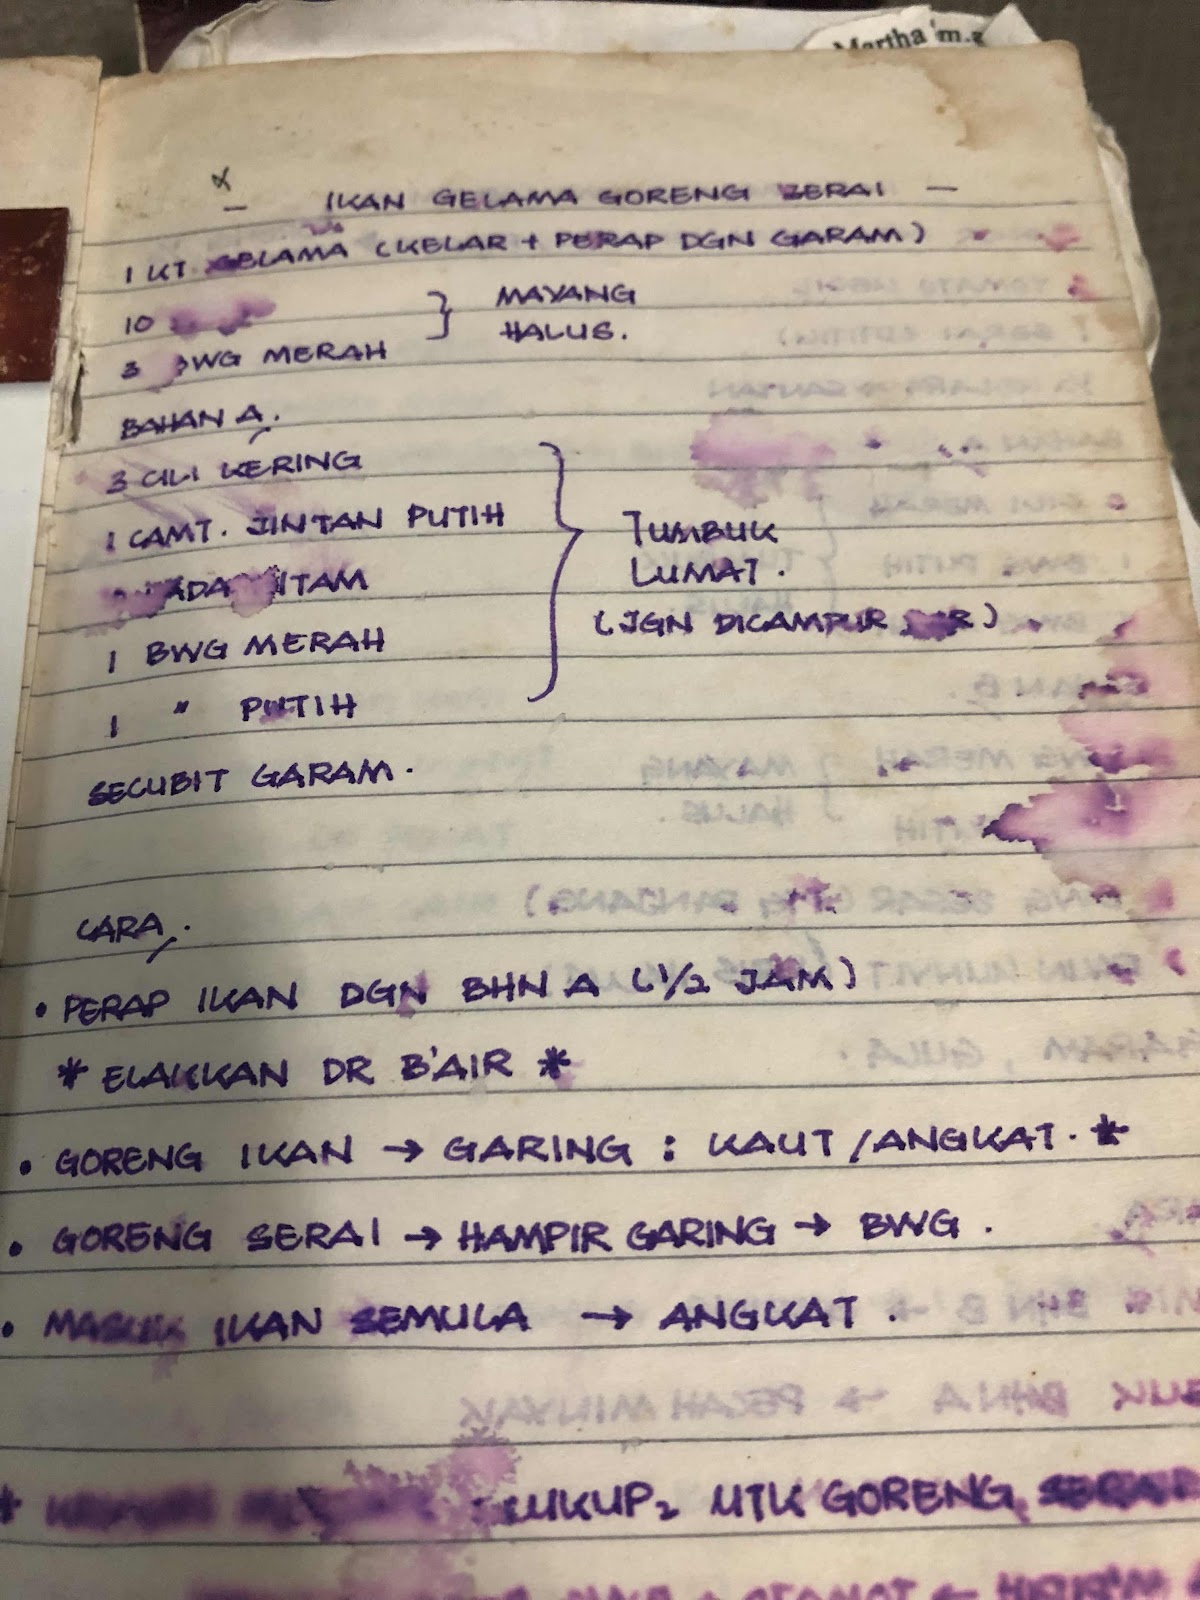 Martha m.g
— IKAN GELAMA GORENG SERAI —
1 KT GELAMA (KELAR + PERAP DGN GARAM)
10 } MAYANG
3 BWG MERAH } HALUS.
BAHAN A.
3 CILI KERING
1 CAMT. JINTAN PUTIH
LADA HITAM
1 BWG MERAH
1 " PUTIH
} TUMBUK
LUMAT.
(JGN DICAMPUR AIR)
SECUBIT GARAM.
CARA.
• PERAP IKAN DGN BHN A (1/2 JAM)
* ELAKKAN DR B'AIR *
• GORENG IKAN → GARING : KAUT/ANGKAT. *
• GORENG SERAI → HAMPIR GARING → BWG.
• MASUK IKAN SEMULA → ANGKAT.
* : CUKUP2 UTK GORENG SERAI